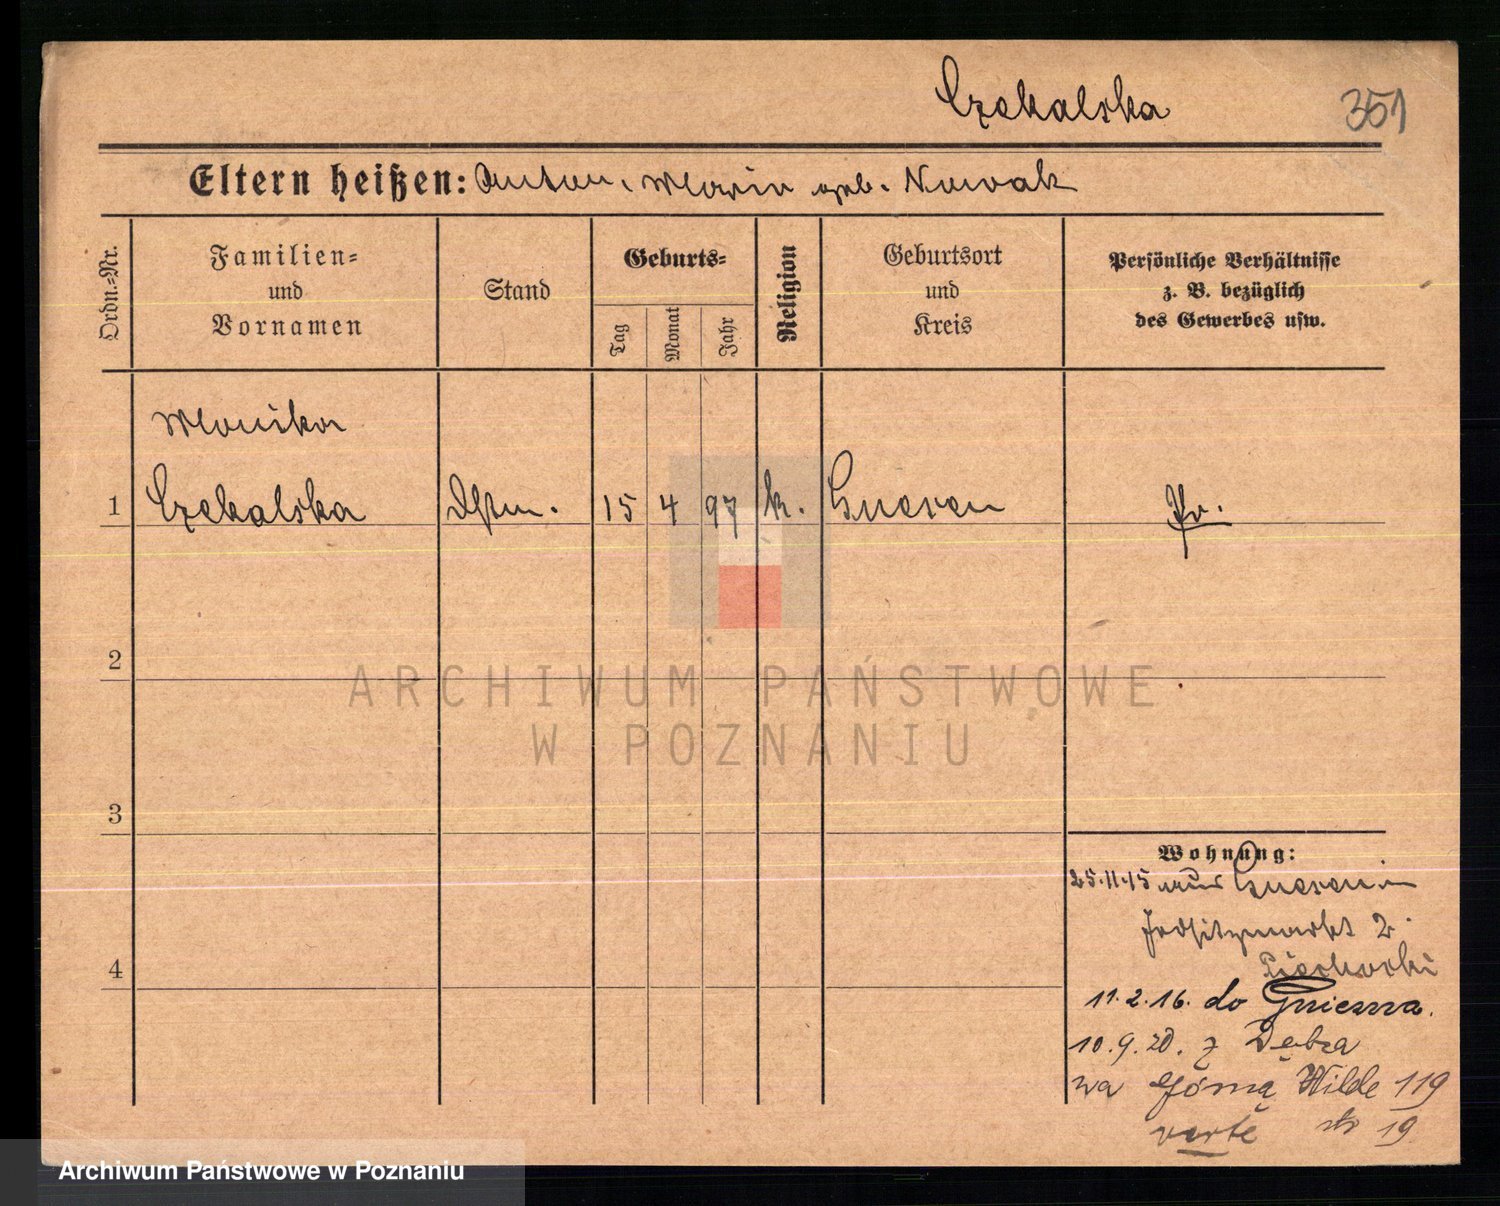 Czekalska
351
Eltern heißen: Anton, Maria geb. Nowak
Ordn.-Nr.
Familien-
und
Vornamen
Stand
Geburts-
Tag
Monat
Jahr
Religion
Geburtsort
und
Kreis
Persönliche Verhältnisse
z. B. bezüglich
des Gewerbes usw.
Monika
1 Czekalska Dstm. 15 4 97 k. Gnesen Pr.
2
3
4
Wohnung:
25.11.15 aus Gnesen
2
11.2.16. do Gniezna.
10.9.20. z Dębca
na Górną Wilde 119
verte 19
ARCHIWUM PAŃSTWOWE
W POZNANIU
Archiwum Państwowe w Poznaniu